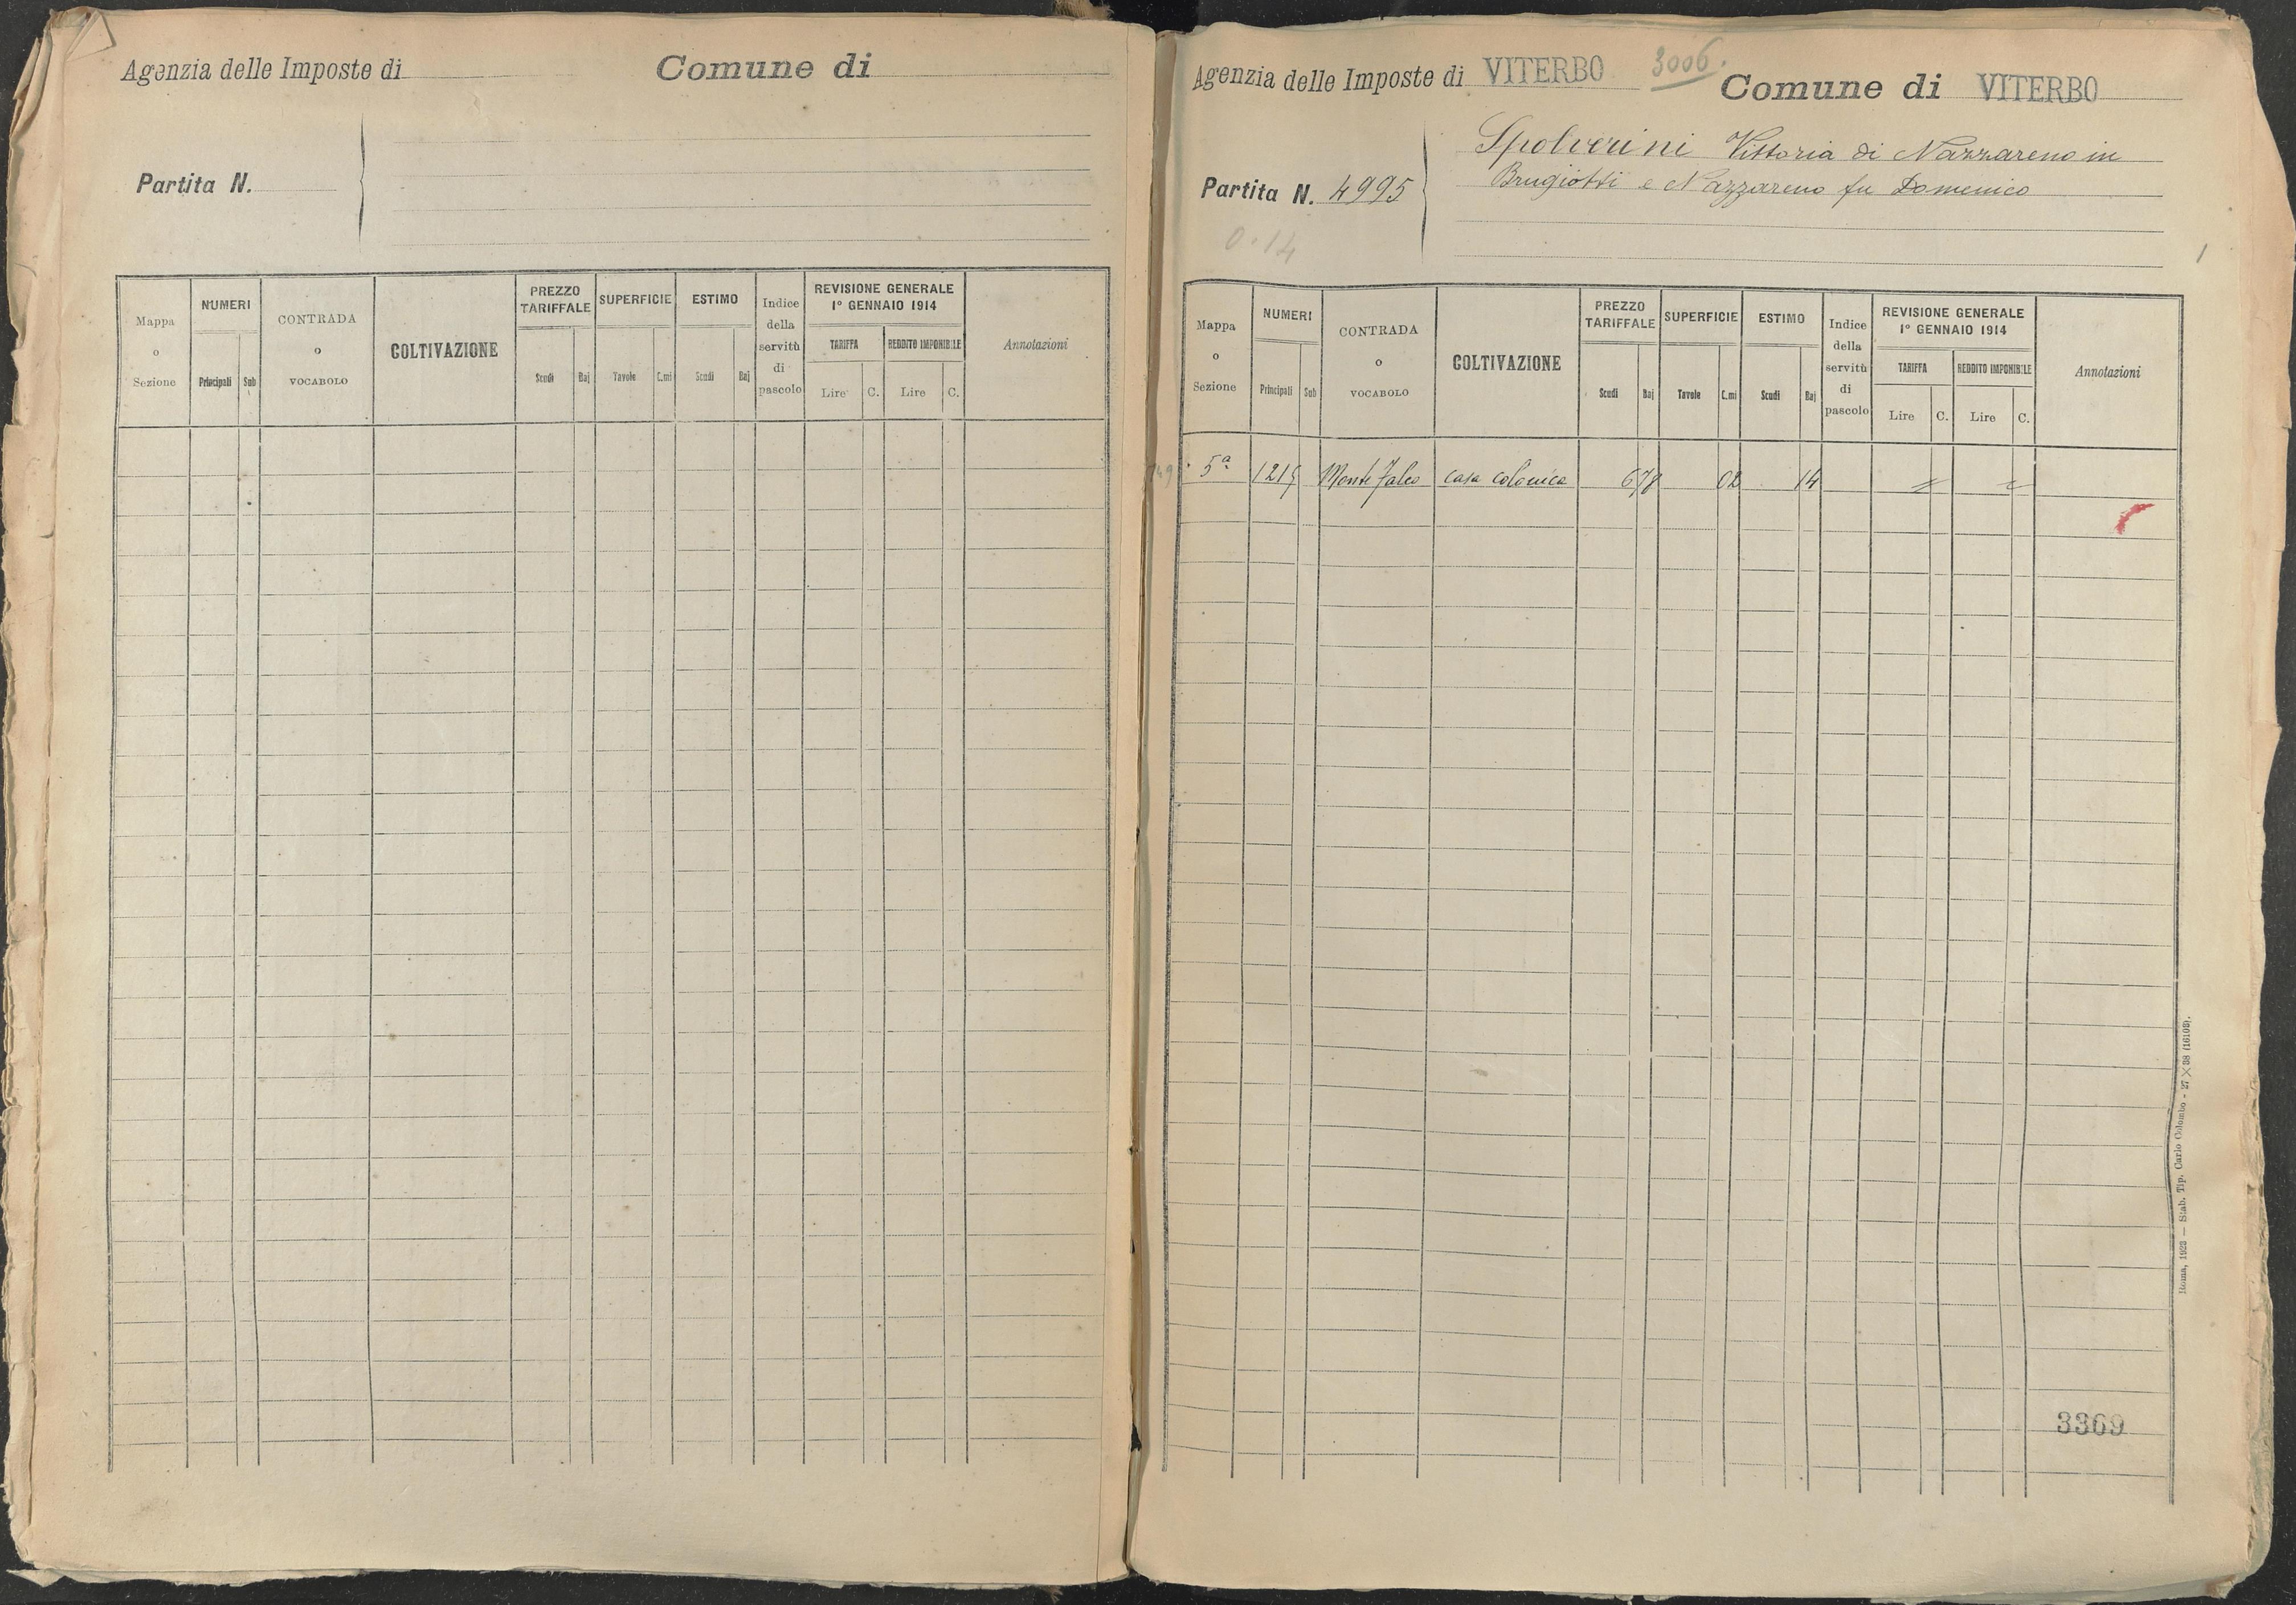 Agenzia delle Imposte di Comune di
Partita N.
Mappa o Sezione NUMERI Principali Sub CONTRADA o VOCABOLO COLTIVAZIONE PREZZO TARIFFALE Scudi Baj SUPERFICIE Tavole C.mi ESTIMO Scudi Baj Indice della servitù di pascolo REVISIONE GENERALE 1° GENNAIO 1914 TARIFFA Lire C. REDDITO IMPONIBILE Lire C. Annotazioni
Agenzia delle Imposte di VITERBO 3006. Comune di VITERBO
Spolverini Vittoria di Nazzareno in
Partita N. 4995 Brugiotti e Nazzareno fu Domenico
0.14
Mappa o Sezione NUMERI Principali Sub CONTRADA o VOCABOLO COLTIVAZIONE PREZZO TARIFFALE Scudi Baj SUPERFICIE Tavole C.mi ESTIMO Scudi Baj Indice della servitù di pascolo REVISIONE GENERALE 1° GENNAIO 1914 TARIFFA Lire C. REDDITO IMPONIBILE Lire C. Annotazioni
5ª 1215 Monte Falco casa colonica 678 02 14
3369
Roma, 1923 — Stab. Tip. Carlo Colombo - 27 × 38 (16103).